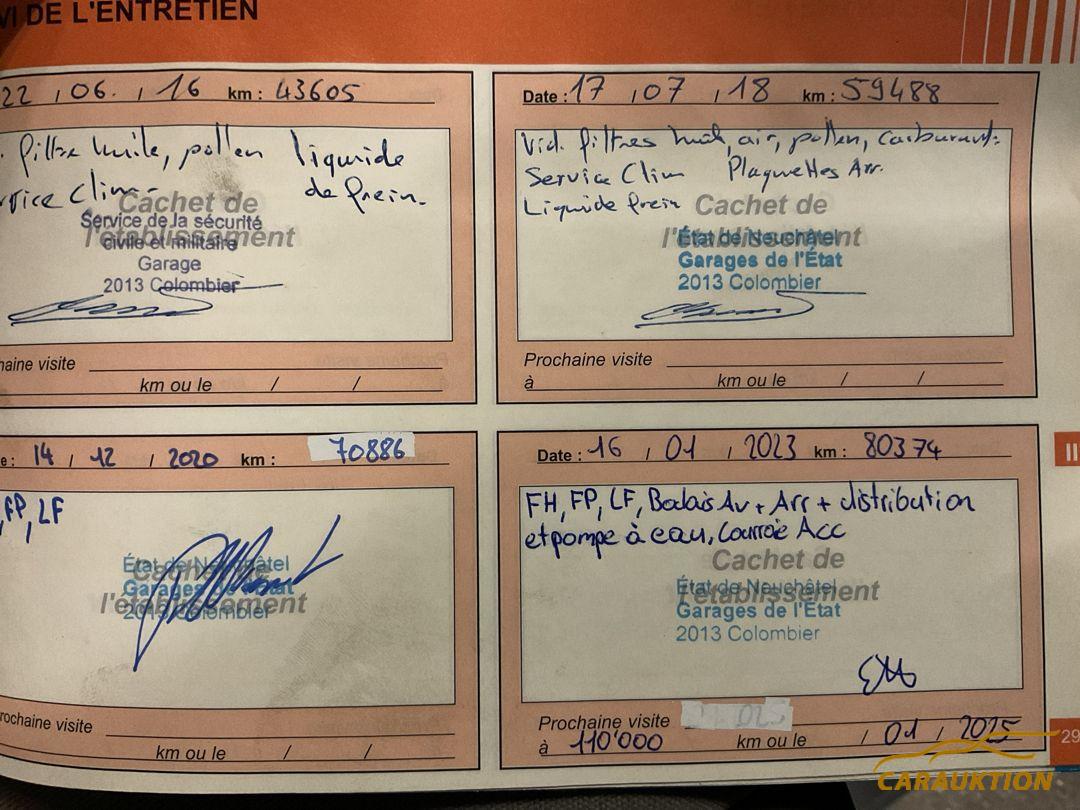 VI DE L'ENTRETIEN
22 / 06. / 16 km : 43605
. filtre huile, pollen liquide
rvice Clim. de frein.
Cachet de
l'établissement
Service de la sécurité
civile et militaire
Garage
2013 Colombier
haine visite
km ou le / /
Date : 17 / 07 / 18 km : 59488
Vid. filtres huil, air, pollen, carburant.
Service Clim Plaquettes Arr.
Liquide frein
Cachet de
l'établissement
État de Neuchâtel
Garages de l'État
2013 Colombier
Prochaine visite
à km ou le / /
e : 14 / 12 / 2020 km : 70886
, FP, LF
État de Neuchâtel
Garages de l'État
2013 Colombier
Cachet de
l'établissement
rochaine visite
km ou le / /
Date : 16 / 01 / 2023 km : 80374
FH, FP, LF, Balais Av + Arr + distribution
et pompe à eau, Courroie Acc
Cachet de
l'établissement
État de Neuchâtel
Garages de l'État
2013 Colombier
Prochaine visite
à 110'000 km ou le / 01 / 2025
II
29
CARAUKTION